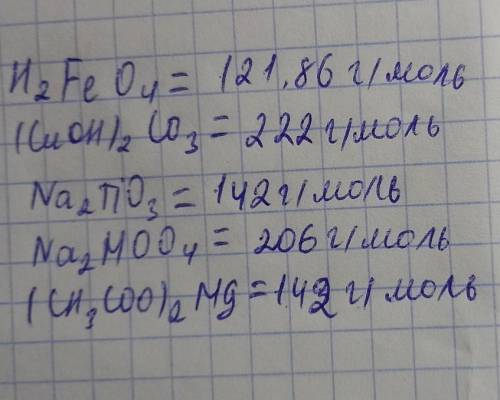 H₂FeO₄ = 121,86 г/моль
(CuOH)₂CO₃ = 222 г/моль
Na₂TiO₃ = 142 г/моль
Na₂MOO₄ = 206 г/моль
(CH₃COO)₂Mg = 142 г/моль